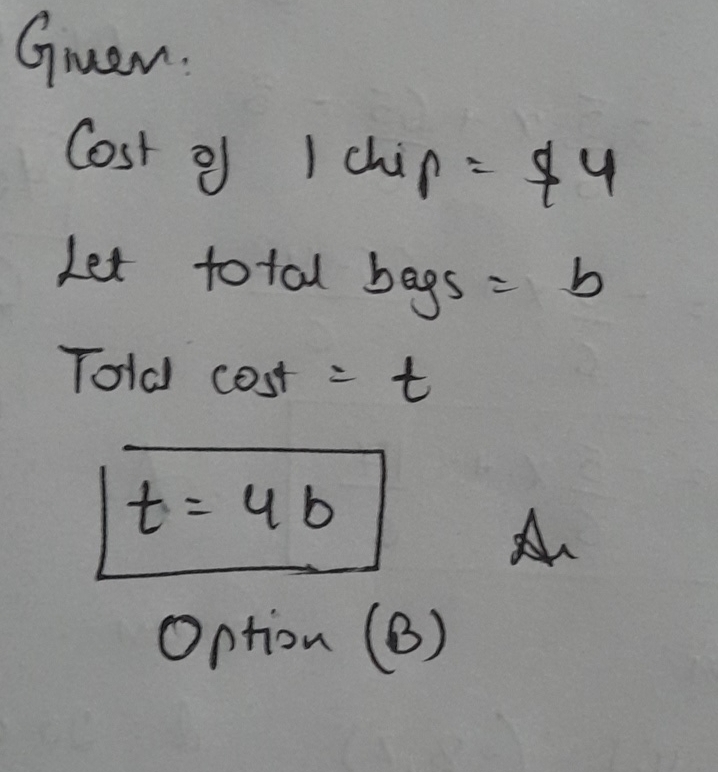 Given:
Cost of 1 chip = $4
Let total bags = b
Total cost = t
t = 4b
An
Option (B)